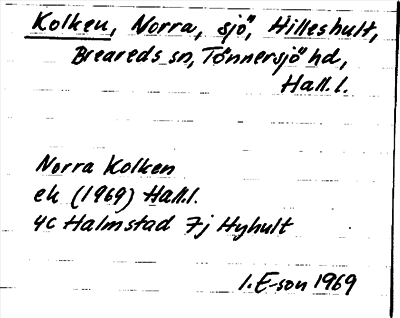 Kolken, Norra, sjö, Hilleshult,
Breareds sn, Tönnersjö hd,
Hall. l.
Norra Kolken
ek (1969) Hall.l.
4c Halmstad 7j Hyhult
1. E-son 1969